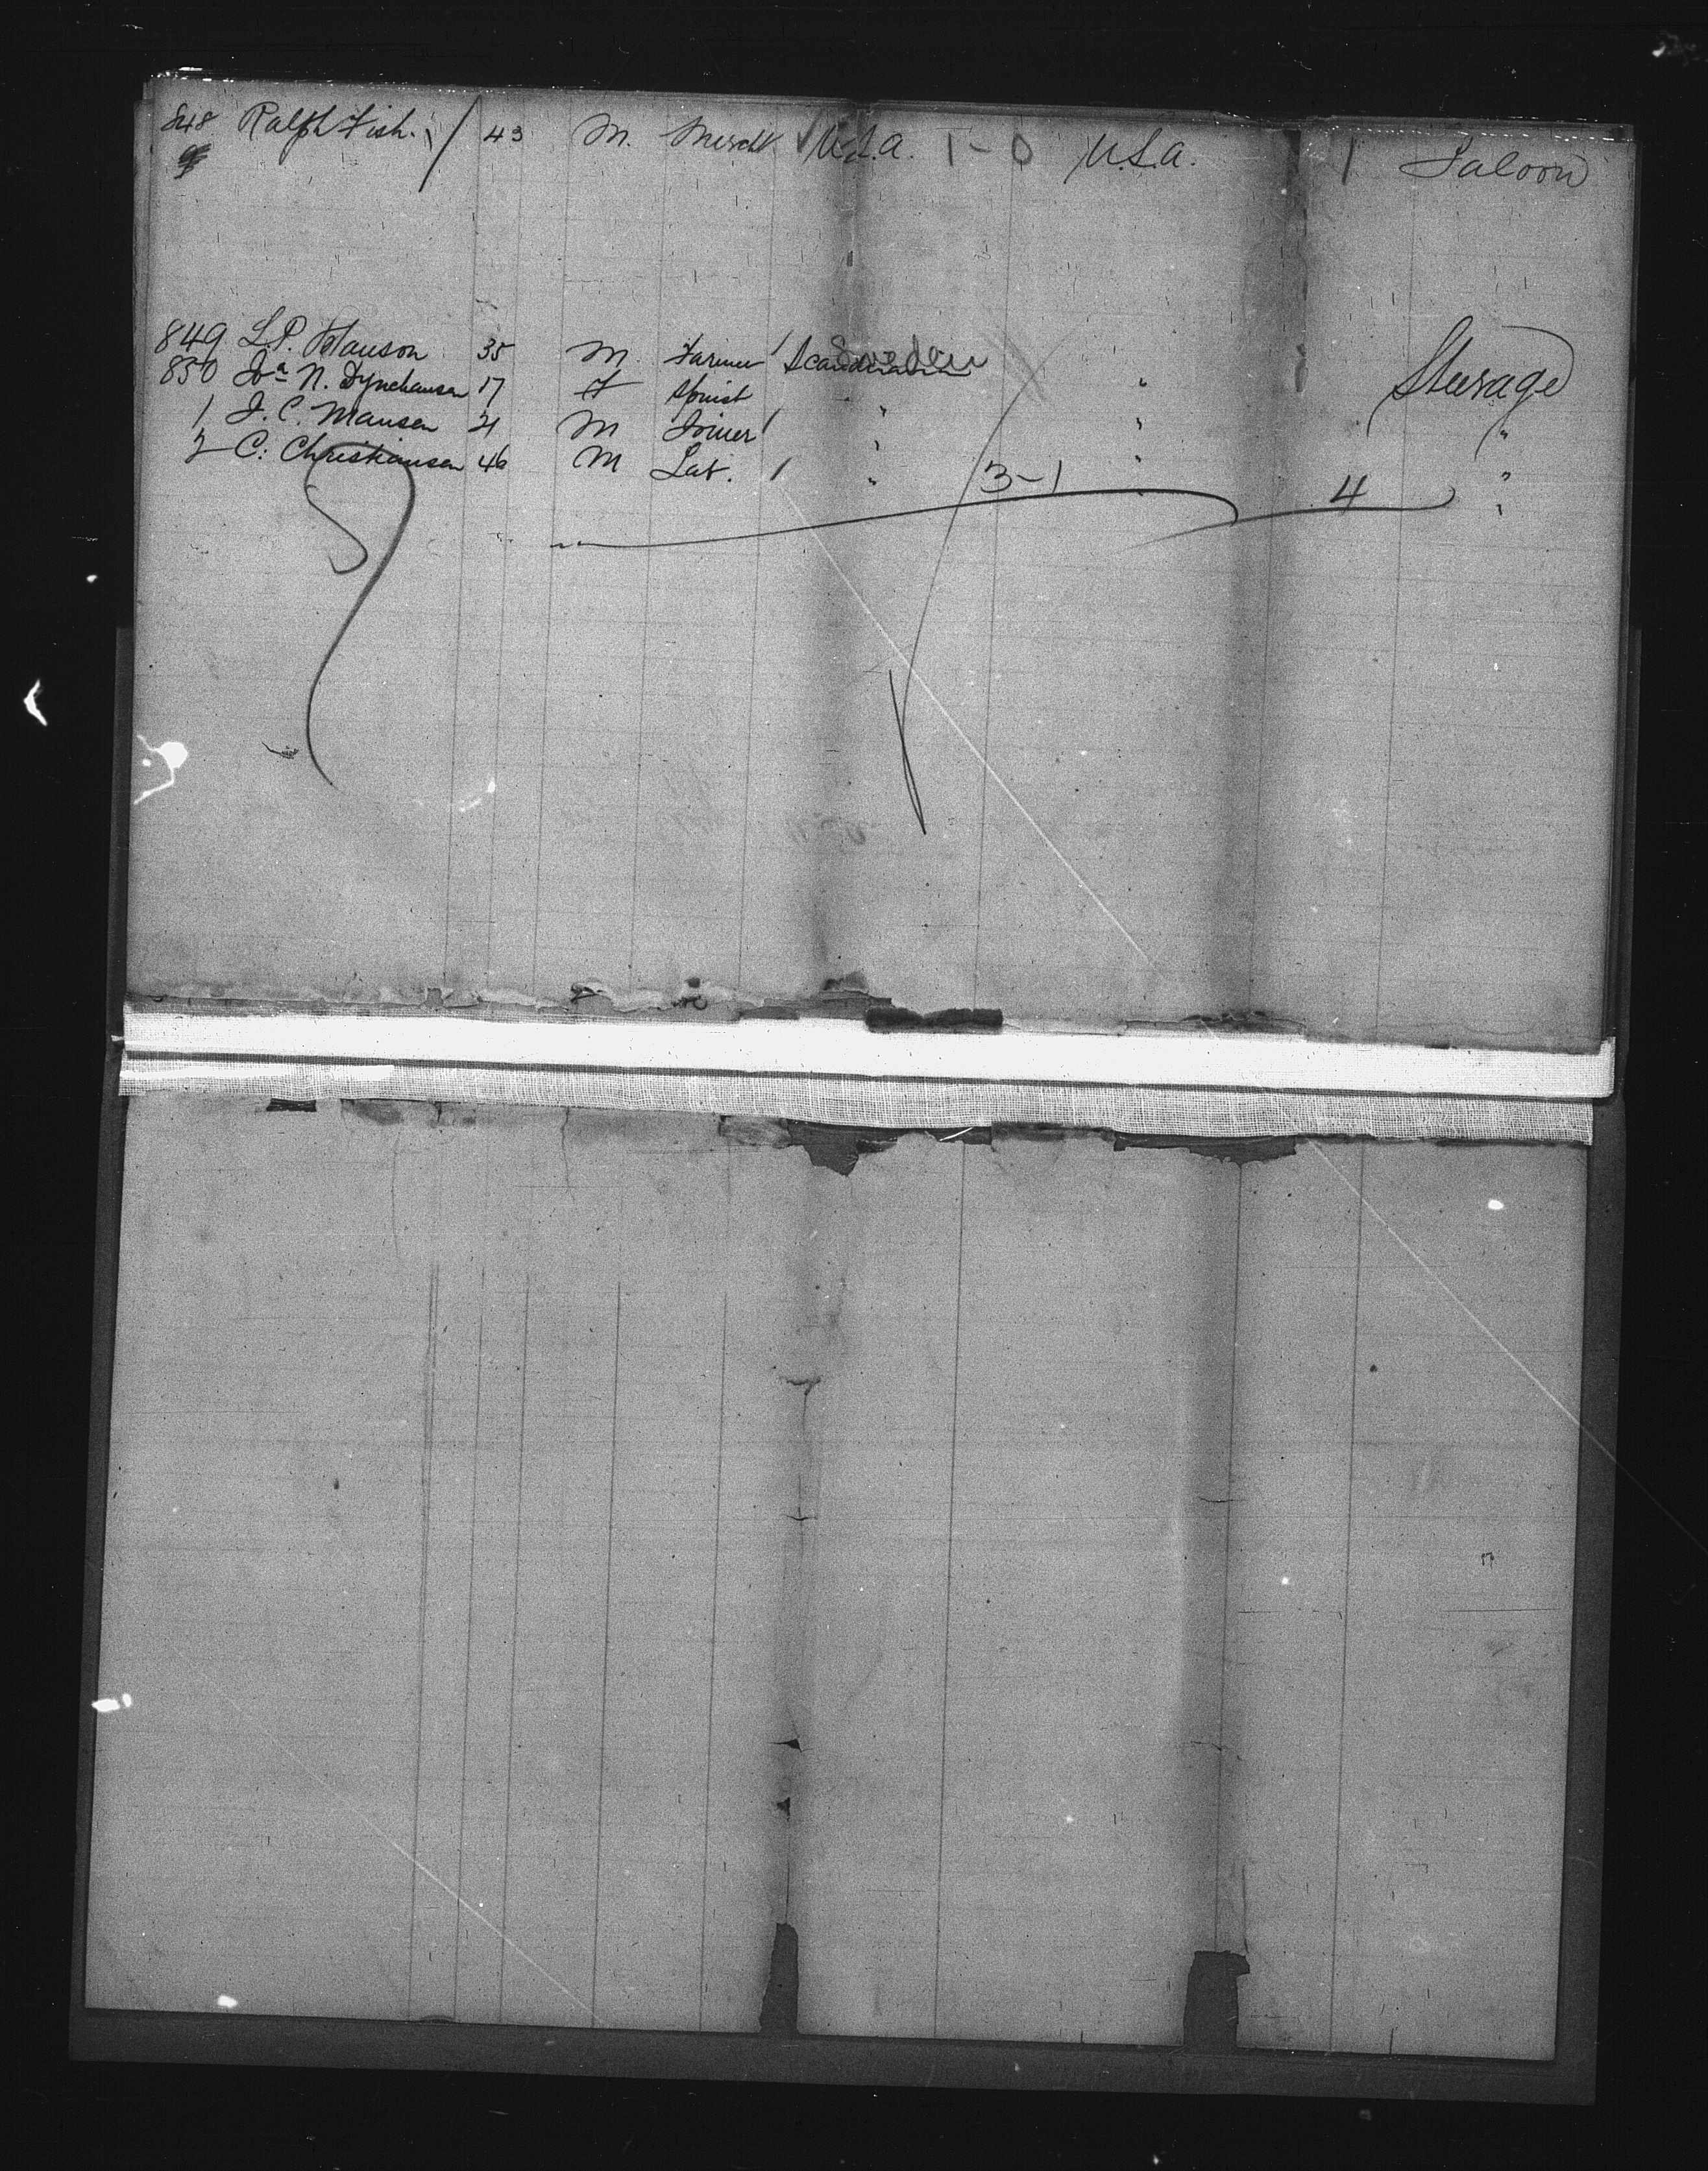 848 Ralph Fish. / 43 M. Mercht U.S.A. 1-0 U.S.A. 1 Saloon
849 L.P. Hanson 35 M. Farmer / Scandinavia Sweden " Steerage
850 N. 17 F Spinst " " "
1 J. C. Mansen 21 M Joiner / " " "
2 C. Christiansen 46 M Lab. / " 3-1 " 4 "